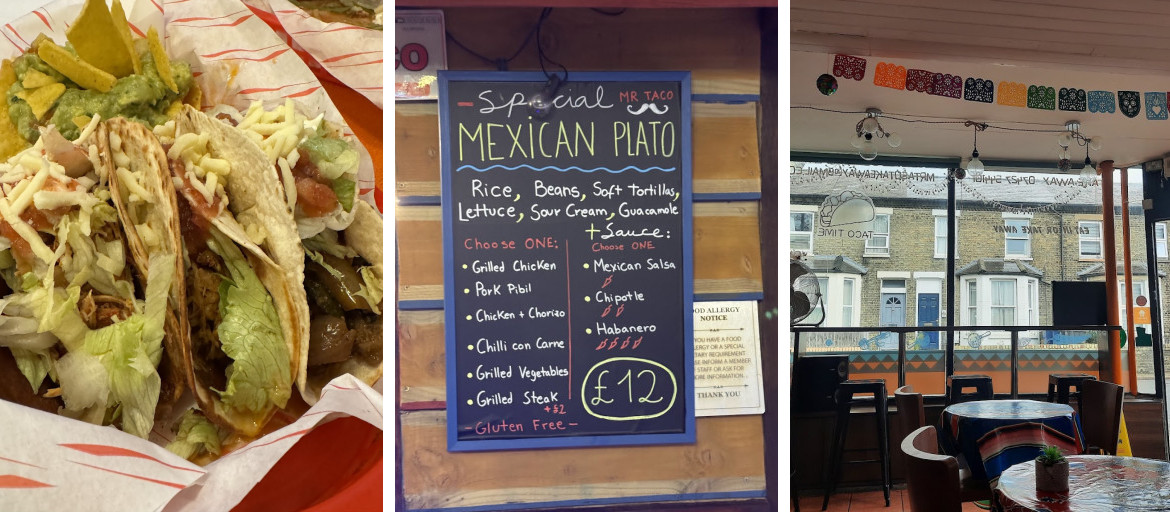 Special MR TACO
MEXICAN PLATO
Rice, Beans, Soft Tortillas,
Lettuce, Sour Cream, Guacamole
+ Sauce:
Choose ONE:
• Grilled Chicken
• Pork Pibil
• Chicken + Chorizo
• Chilli con Carne
• Grilled Vegetables
• Grilled Steak
+£2
- Gluten Free -
Choose ONE
• Mexican Salsa
• Chipotle
• Habanero
£12
OD ALLERGY
NOTICE
YOU HAVE A FOOD
LERGY OR A SPECIAL
TARY REQUIREMENT
SE INFORM A MEMBER
STAFF OR ASK FOR
ORE INFORMATION...
THANK YOU
TACO TIME
EAT IN OR TAKE AWAY